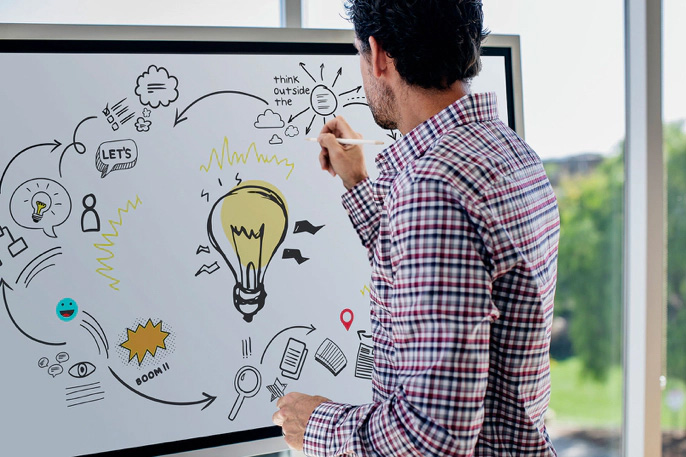 think
outside
the
LET'S
BOOM!!